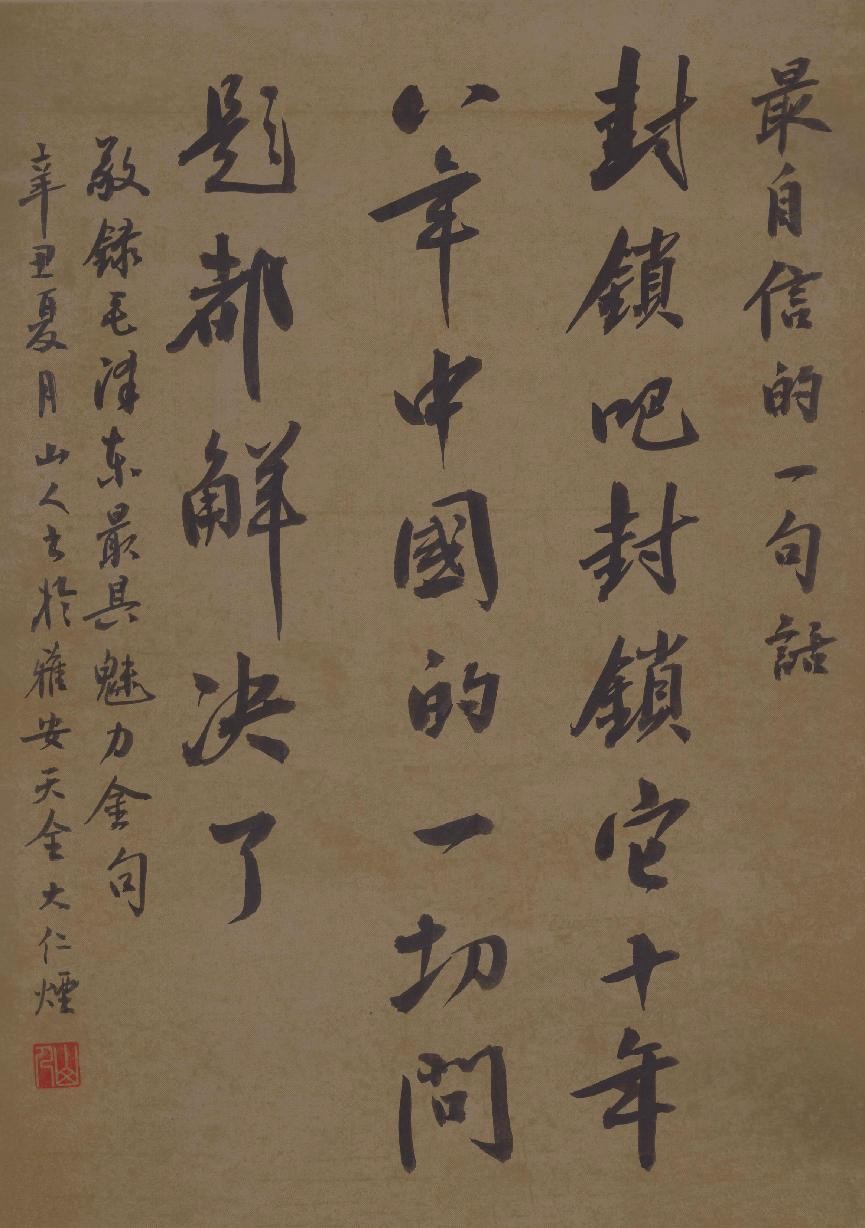 最自信的一句話
封鎖吧封鎖它十年
八年中國的一切問
題都解決了
敬錄毛澤东最具魅力金句
辛丑夏月山人书於雅安天全大仁煙